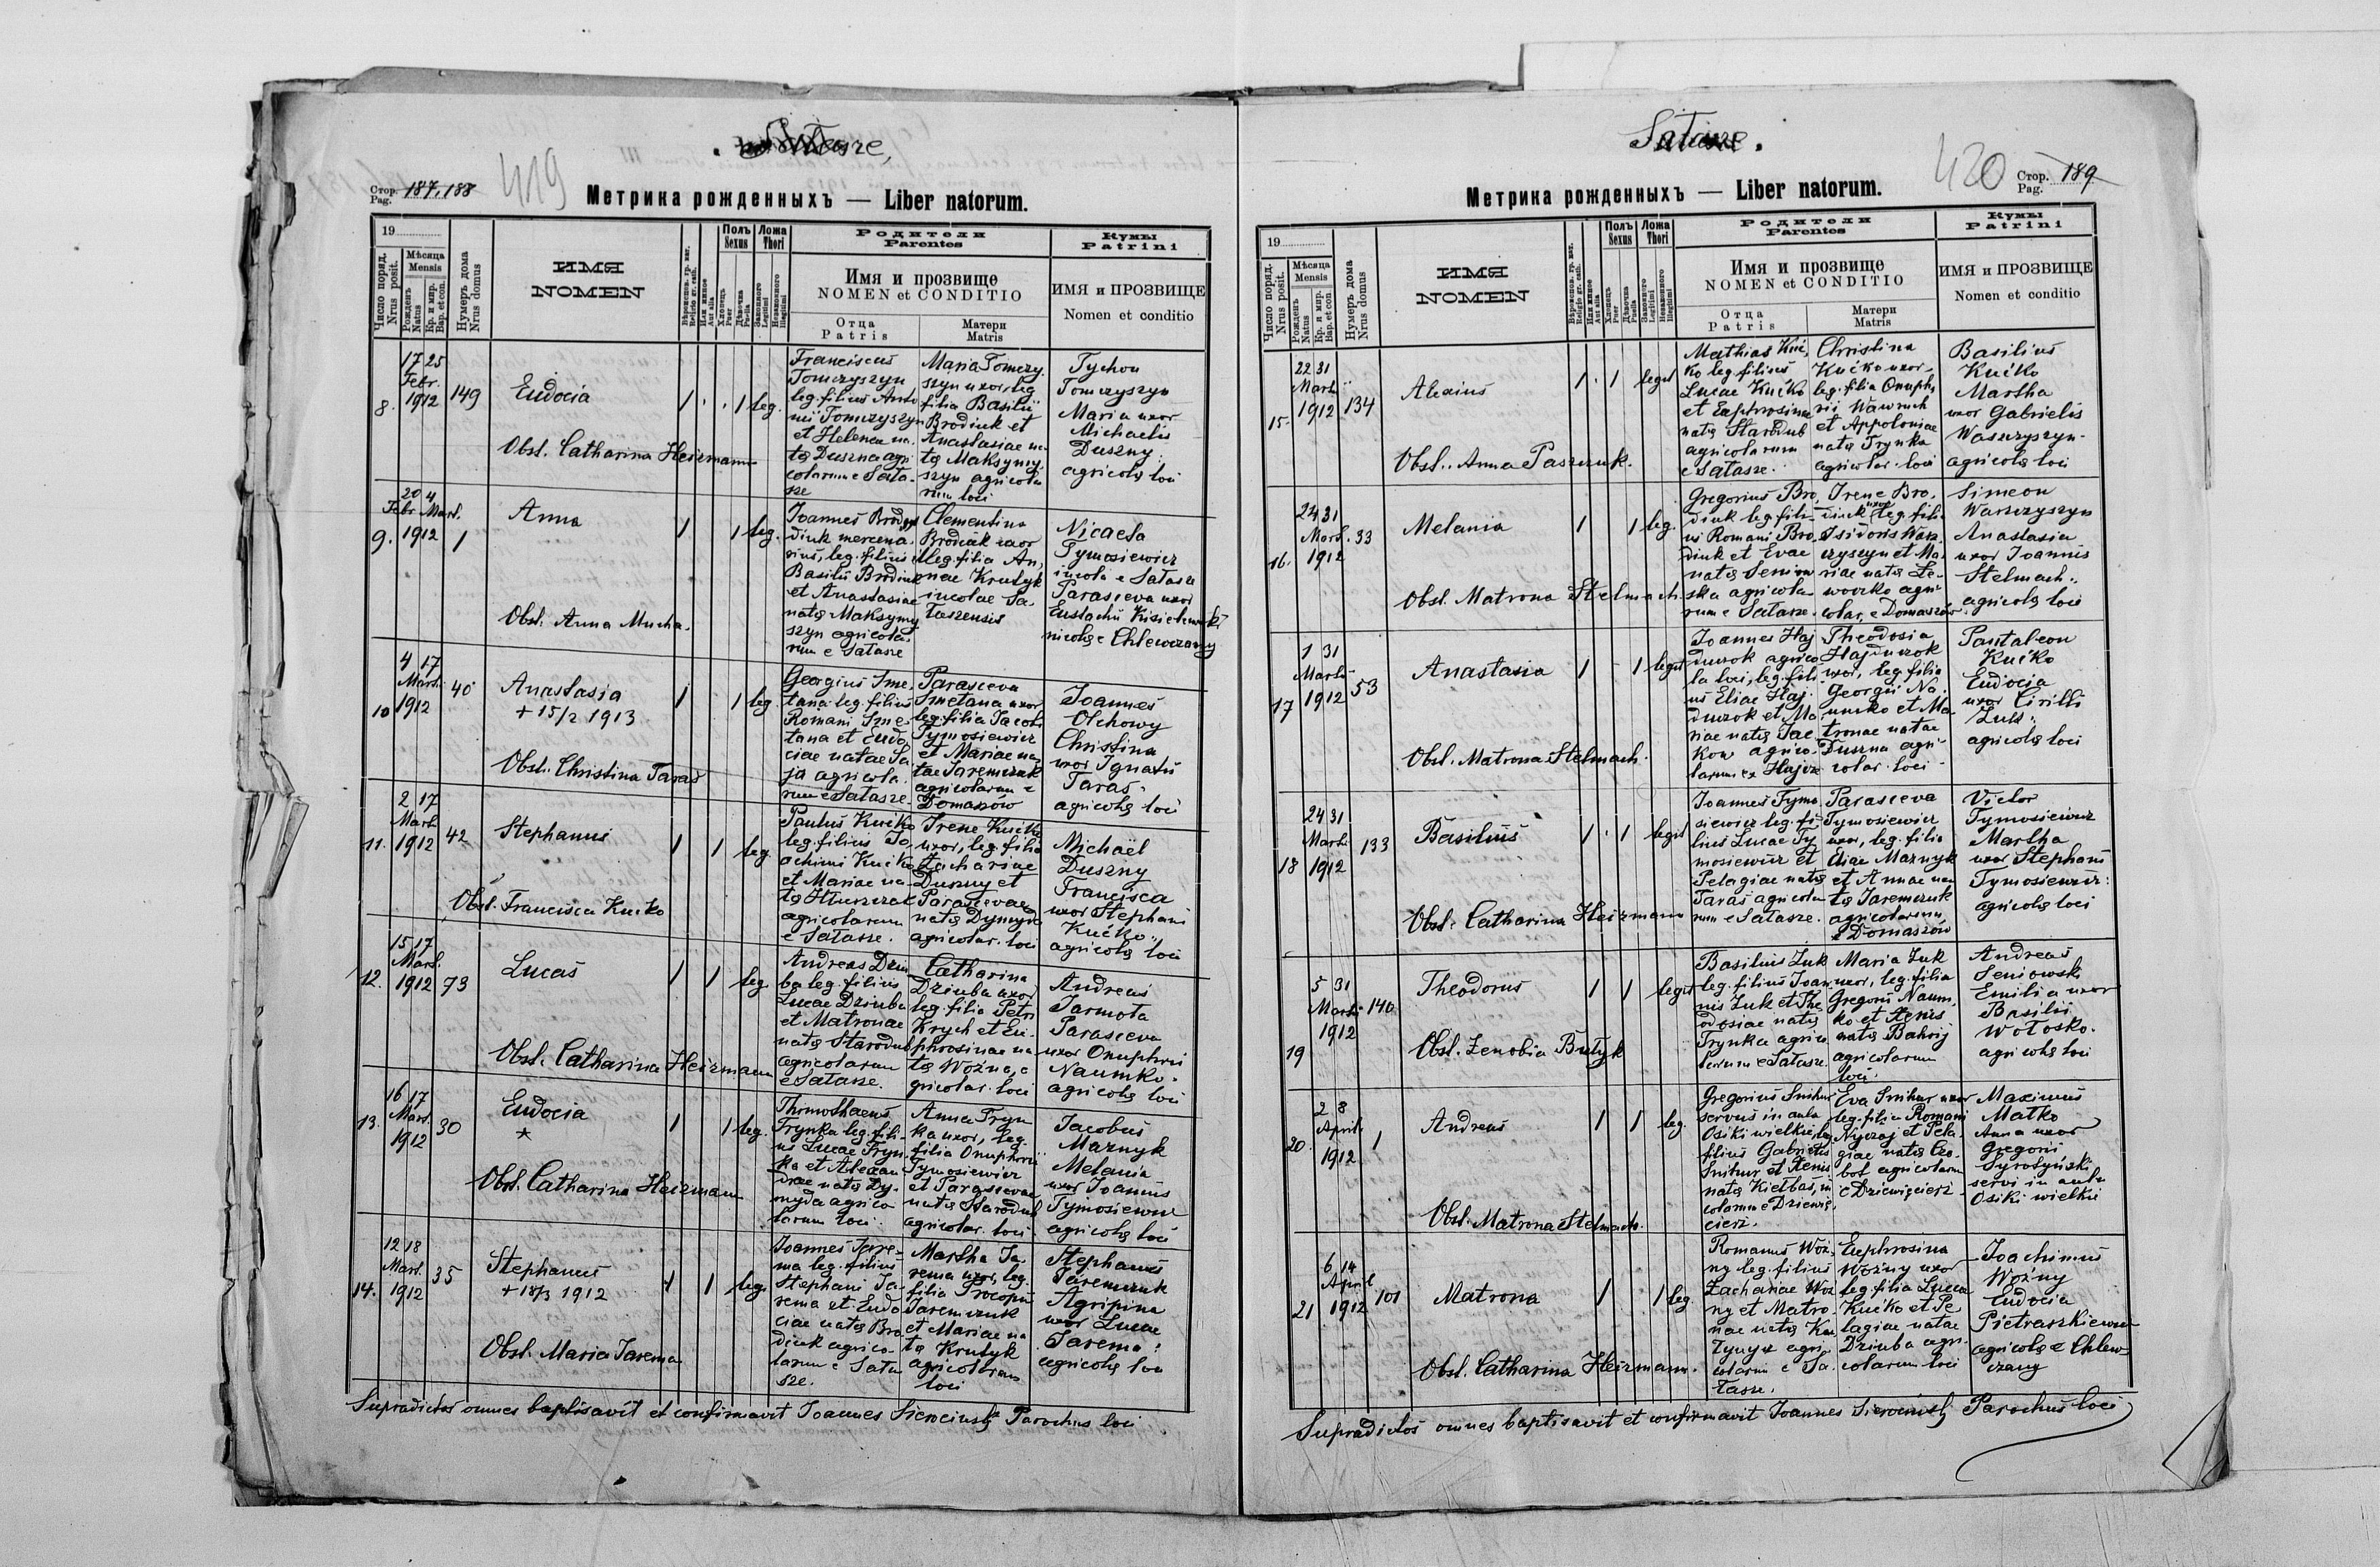 Satasze,
419
Стор. Pag. 187, 188
Метрика рожденныхъ — Liber natorum.
19
Число поряд. Nrus posit.
Мѣсяца Mensis
Рожденъ Natus
Кр. и мир. Bap. et con.
Нумеръ дома Nrus domus
ИМЯ NOMEN
Полъ Sexus
Ложа Thori
Хлопець Puer
Дѣвочка Puella
Законного Legitimi
Незаконного Illegitimi
Родители Parentes
Имя и прозвище
NOMEN et CONDITIO
Отца Patris
Матери Matris
Кумы Patrini
ИМЯ и ПРОЗВИЩЕ
Nomen et conditio
8. 17 25 Febr. 1912 149
Eudocia
1 1 leg.
Obst. Catharina Heizmann
Franciscus
Tomczyszyn
leg. filius Anto
nii Tomczyszyn
et Helenae na.
tę Duszna agri
colarum e Sata-
sze
Maria Tomczy
szyn uxor, leg
filia Basilii
Brodiuk et
Anastasiae na
tę Maksymy
szyn agricola
rum loci
Tychon
Tomczyszyn
Maria uxor
Michaelis
Duszny
agricolę loci
9. 20 4 Febr. Mart. 1912 1
Anna
1 1 leg.
Obst. Anna Mucha.
Joannes Bro
diuk mercena.
rius, leg. filius
Basilii Brodiuk
et Anastasiae
natę Maksymy
szyn agricola.
rum e Satasze
Clementina
Brodiuk uxor
leg. filia An,
nae Krutyk
incolae Sa-
taszensis
Nicaeta
Tymosiewicz
incola e Satasze
Parasceva uxor
Eustachii
incolę e Chlewczany
10 4 17 Marti 1912 40
Anastasia
+ 15/2 1913
1 1 leg.
Obst. Christina Taras
Georgius Sme,
tana leg. filius
Romani Sme-
tana et Eudo
ciae natae Sa
ja agricola.
rum e Satasze.
Parasceva
Smetana uxor
leg. filia Jacobi
Tymosiewicz
et Mariae na
tae Jaremczuk
agricolarum e
Domaszów
Joannes
Olchowy
Christina
uxor Ignatii
Taras.
agricolę loci
11. 2 17 Mart. 1912 42
Stephanus
1 1 leg
Obst. Francisca Kućko
Paulus Kućko
leg. filius Jo
achimi Kućko
et Mariae na
tę
agricolarum
e Satasze.
Irene Kućko
uxor, leg. filia
Zachariae
Duszny et
Parascevae
natę Dymyda
agricolar. loci
Michaël
Duszny
Francisca
uxor Stephani
Kućko.
agricolę loci
12. 15 17 Mart. 1912 73
Lucas
1 1 leg
Obst. Catharina Heizmann
Andreas Dziu
ba leg. filius
Lucae Dziuba
et Matronae
natę Starodub
agricolarum
e Satasze.
Catharina
Dziuba uxor
leg. filia Petri
Krych et Eu-
phrosinae na
tę Woźna, a
gricolar. loci
Andreas
Jarmoła
Parasceva
uxor Onuphrii
Naumko.
agricolę loci
13. 16 17 Mart. 1912 30
Eudocia
*
1 1 leg.
Obst. Catharina Heizmann
Thimothaeus
Trynka leg. fili-
us Lucae Tryn
ka et Alexan
drae natę Dy-
myda agrico
larum loci
Anna Tryn
ka uxor, leg.
filia Onuphrii
Tymosiewicz
et Parascevae
natę Starodub
agricolar. loci.
Jacobus
Maznyk
Melania
uxor Joannis
Tymosiewicz
agricolę loci
14. 12 18 Mart. 1912 35
Stephanus
+ 18/3 1912
1 1 leg.
Obst. Maria Jarema
Joannes Jare-
ma leg. filius
Stephani Ja
rema et Eudo
ciae natę Bro
diuk agrico
larum e Sata
sze.
Martha Ja
rema uxor, leg.
filia Procopii
Jaremczuk
et Mariae na
tę Krutyk
agricolarum
loci
Stephanus
Jaremczuk
Agripina
uxor Lucae
Jarema.
agricolę loci
Supradictos omnes baptisavit et confirmavit Joannes Parochus loci
Satasze.
420
Стор. Pag. 189
Метрика рожденныхъ — Liber natorum.
19
Число поряд. Nrus posit.
Мѣсяца Mensis
Рожденъ Natus
Кр. и мир. Bap. et con.
Нумеръ дома Nrus domus
ИМЯ NOMEN
Полъ Sexus
Ложа Thori
Хлопець Puer
Дѣвочка Puella
Законного Legitimi
Незаконного Illegitimi
Родители Parentes
Имя и прозвище
NOMEN et CONDITIO
Отца Patris
Матери Matris
Кумы Patrini
ИМЯ и ПРОЗВИЩЕ
Nomen et conditio
15. 22 31 Martii 1912 134
Alexius
1 1 legit
Obst. Anna Paszczuk.
Mathias Kuć,
ko leg. filius
Lucae Kućko
et Euphrosinae
natę Starodub
agricolarum
e Satasze.
Christina
Kućko uxor
leg. filia Onuph
rii Wawruch
et Appoloniae
natę Trynka
agricolar. loci
Basilius
Kućko
Martha
uxor Gabrielis
Waszczyszyn
agricolę loci
16. 24 31 Mart. 1912 33
Melania
1 1 leg.
Obst. Matrona Stelmach
Gregorius Bro,
diuk leg. fili-
us Romani Bro
diuk et Evae
natę Seniow
ska agricola
rum e Satasze.
Irene Bro.
diuk uxor leg. filia
Isidoris Wasz
czyszyn et Ma
riae natę Le-
woczko agri
colar. e Domaszów
Simeon
Waszczyszyn
Anastasia
uxor Joannis
Stelmach..
agricolę loci
17 1 31 Martii 1912 53
Anastasia
1 1 legit
Obst. Matrona Stelmach.
Joannes Haj
duczok agrico
la loci, leg. fili
us Eliae Haj.
duczok et Ma
riae natę Jac
kow agrico-
larum
Theodosia
Hajduczok
uxor, leg. filia
Georgii Na.
umko et Ma
tronae natae
Duszna agri
colar. loci
Pantaleon
Kućko
Eudocia
uxor Cirilli
Zuk..
agricolę loci
18 24 31 Martii 1912 133
Basilius
1 1 legit
Obst. Catharina Heizmann
Joannes Tymo
siewicz leg. fi
lius Lucae Ty
mosiewicz et
Pelagiae natę
Taras agricola
rum e Satasze.
Parasceva
Tymosiewicz
uxor, leg. filia
Eliae Maznyk
et Annae na
tę Jaremczuk
agricolarum,
e Domaszów
Victor
Tymosiewicz
Martha
uxor Stephani
Tymosiewicz:
agricolę loci
19 5 31 Martii 1912 140
Theodorus
1 1 legit
Obst. Zenobia Butyk
Basilius Zuk
leg. filius Joan
nis Zuk et The
odosiae natę
Trynka agrico
larum e Satasze
Maria Zuk
uxor, leg. filia
Gregorii Naum.
ko et Xenis
natę Bahrij
agricolarum
loci.
Andreas
Seniowski
Emilia uxor
Basilii
Wołosko.
agricolę loci
20. 2 8 Aprili 1912 1
Andreas
1 1 leg
Obst. Matrona Stelmach.
Gregorius Snihur
servus in aula
Osiki wielkie, leg
filius Gabrielis
Snihur et Xenis
natę Kiełbas,
colarum e Dziewię,
cierz.
Eva Snihur uxor
leg. filia Romani
Nyczaj et Pela.
giae natę
agricolarum
e Dziewięcierz
Maximus
Matko
Anna uxor
Gregorii
Syrotyński
servi in aula
Osiki wielkie
21 6 14 April 1912 101
Matrona
1 1 leg
Obst. Catharina Heizmann.
Romanus Woź.
ny leg. filius
Zachariae Woź
ny et Matro.
nae natę
agri.
colarum e Sa.
tasze.
Euphrosina
Woźny uxor
leg. filia Lucae
Kućko et Pe
lagiae natae
Dziuba agri-
colarum loci
Joachimus
Woźny
Eudocia
Pietraszkiewicz
agricolę e Chlew
czany
Supradictos omnes baptisavit et confirmavit Joannes Parochus loci